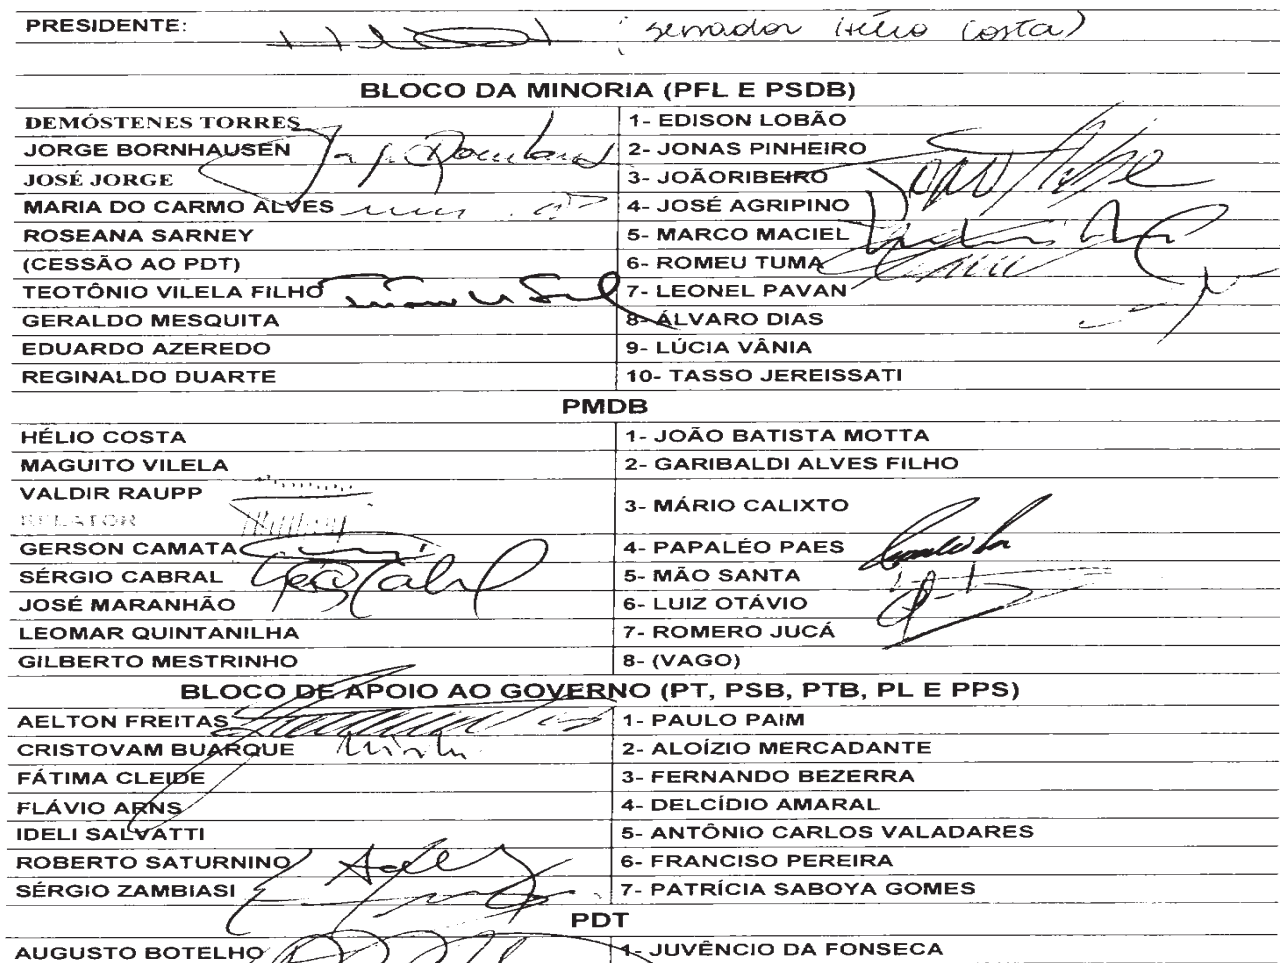 PRESIDENTE: (Senador Hélio Costa)
BLOCO DA MINORIA (PFL E PSDB)
DEMÓSTENES TORRES 1- EDISON LOBÃO
JORGE BORNHAUSEN 2- JONAS PINHEIRO
JOSÉ JORGE 3- JOÃORIBEIRO
MARIA DO CARMO ALVES 4- JOSÉ AGRIPINO
ROSEANA SARNEY 5- MARCO MACIEL
(CESSÃO AO PDT) 6- ROMEU TUMA
TEOTÔNIO VILELA FILHO 7- LEONEL PAVAN
GERALDO MESQUITA 8- ÁLVARO DIAS
EDUARDO AZEREDO 9- LÚCIA VÂNIA
REGINALDO DUARTE 10- TASSO JEREISSATI
PMDB
HÉLIO COSTA 1- JOÃO BATISTA MOTTA
MAGUITO VILELA 2- GARIBALDI ALVES FILHO
VALDIR RAUPP 3- MÁRIO CALIXTO
RELATOR
GERSON CAMATA 4- PAPALÉO PAES
SÉRGIO CABRAL 5- MÃO SANTA
JOSÉ MARANHÃO 6- LUIZ OTÁVIO
LEOMAR QUINTANILHA 7- ROMERO JUCÁ
GILBERTO MESTRINHO 8- (VAGO)
BLOCO DE APOIO AO GOVERNO (PT, PSB, PTB, PL E PPS)
AELTON FREITAS 1- PAULO PAIM
CRISTOVAM BUARQUE 2- ALOÍZIO MERCADANTE
FÁTIMA CLEIDE 3- FERNANDO BEZERRA
FLÁVIO ARNS 4- DELCÍDIO AMARAL
IDELI SALVATTI 5- ANTÔNIO CARLOS VALADARES
ROBERTO SATURNINO 6- FRANCISO PEREIRA
SÉRGIO ZAMBIASI 7- PATRÍCIA SABOYA GOMES
PDT
AUGUSTO BOTELHO 1- JUVÊNCIO DA FONSECA